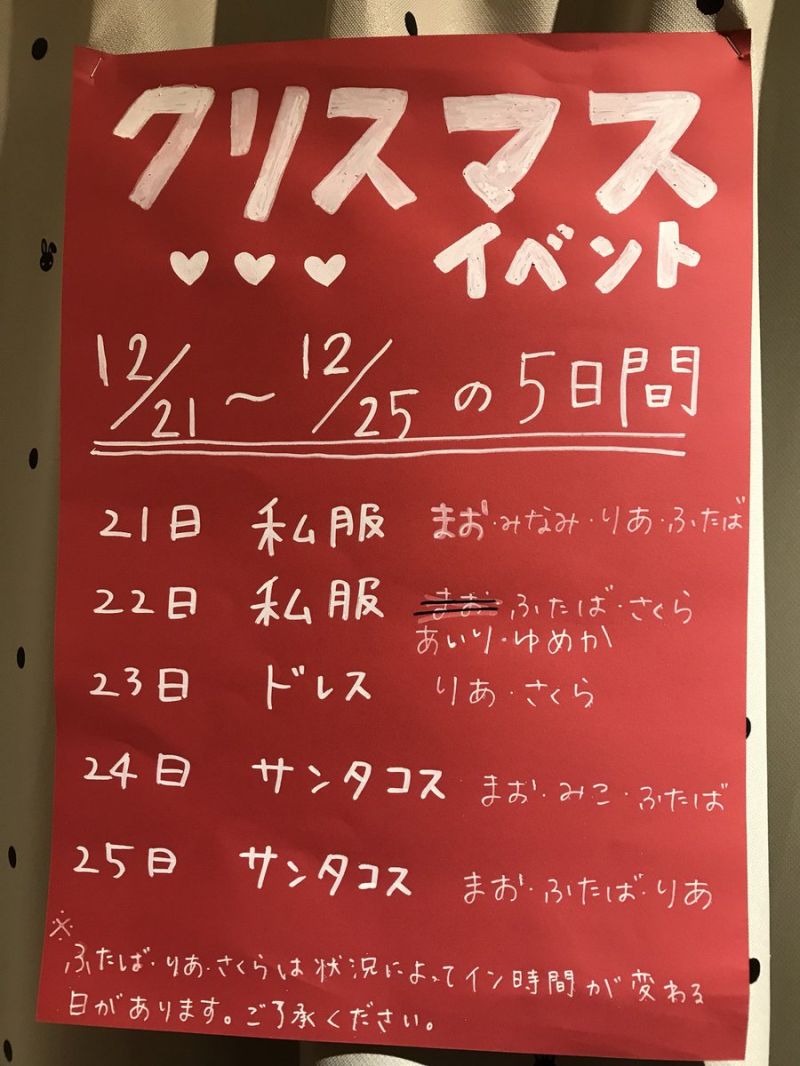 クリスマス
♥♥♥ イベント
12/21～12/25の5日間
21日 私服 まお・みなみ・りあ・ふたば
22日 私服 まお ふたば・さくら
あいり・ゆめか
23日 ドレス りあ・さくら
24日 サンタコス まお・みこ・ふたば
25日 サンタコス まお・ふたば・りあ
※
ふたば・りあ・さくらは状況によってイン時間が変わる
日があります。ご了承ください。